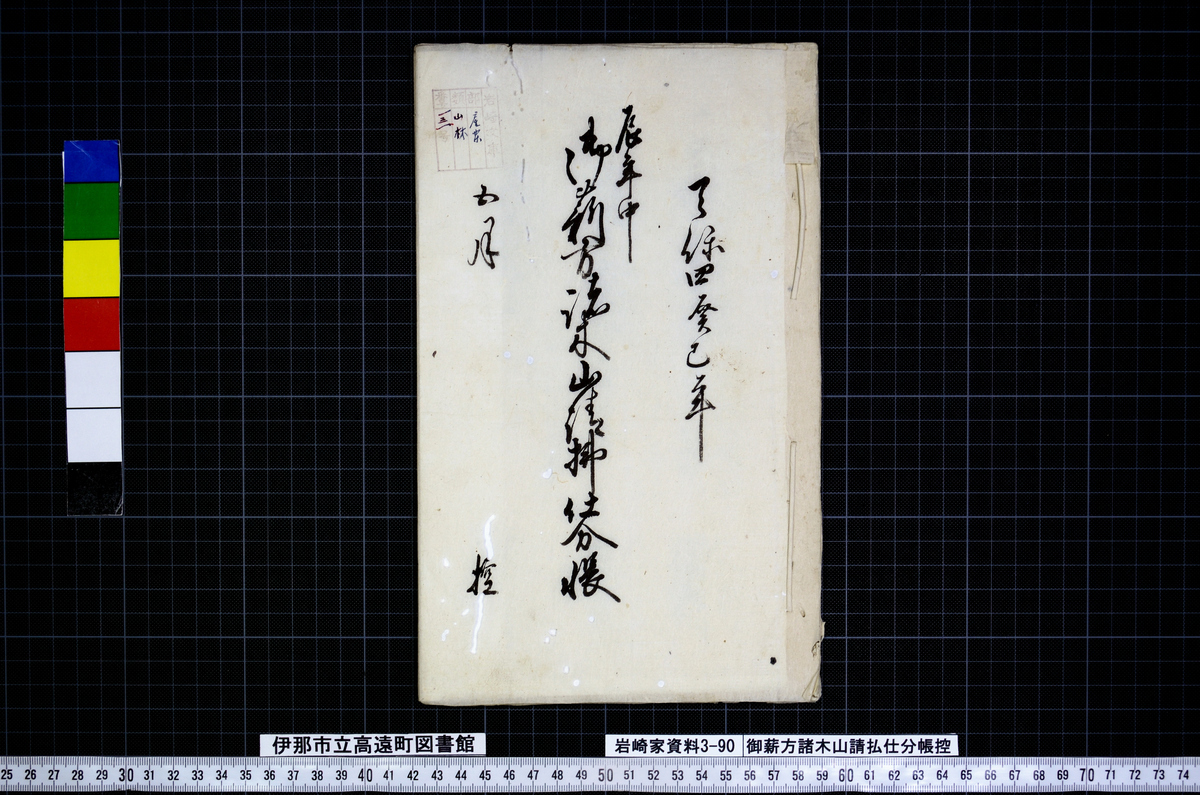 天保四癸巳年
辰年中
御薪方諸木山請拂仕分帳
五月
控
産業
山林
伊那市立高遠町図書館
岩崎家資料3-90
御薪方諸木山請払仕分帳控
25 26 27 28 29 30 31 32 33 34 35 36 37 38 39 40 41 42 43 44 45 46 47 48 49 50 51 52 53 54 55 56 57 58 59 60 61 62 63 64 65 66 67 68 69 70 71 72 73 74